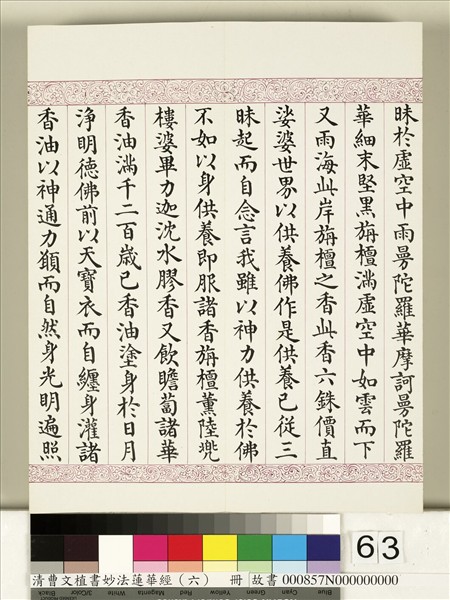 昧於虛空中雨曼陀羅華摩訶曼陀羅
華細末堅黑旃檀滿虛空中如雲而下
又雨海此岸旃檀之香此香六銖價直
娑婆世界以供養佛作是供養已從三
昧起而自念言我雖以神力供養於佛
不如以身供養即服諸香旃檀薰陸兜
樓婆畢力迦沈水膠香又飲瞻蔔諸華
香油滿千二百歲已香油塗身於日月
淨明德佛前以天寶衣而自纏身灌諸
香油以神通力願而自然身光明遍照
63
Blue
Cyan
Green
Yellow
Red
Magenta
White
3/Color
Black
清曹文植書妙法蓮華經（六） 冊 故書 000857N000000000